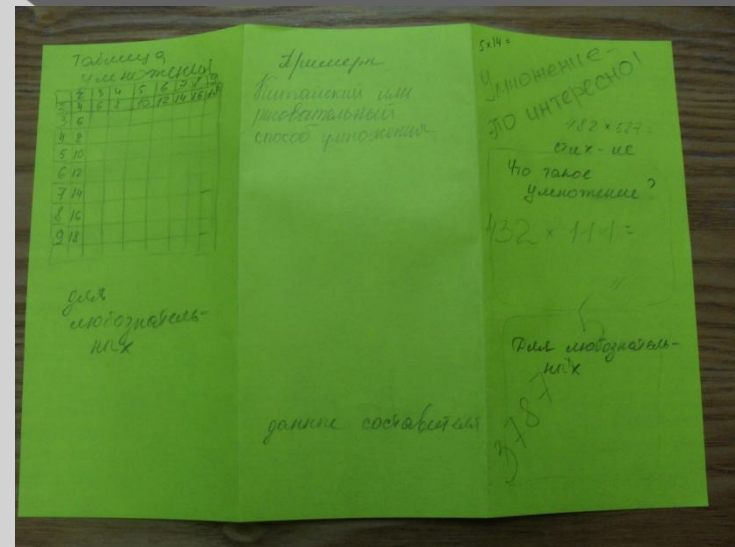 Таблица
умножения
2 3 4 5 6 7 8 9
2 4 6 8 10 12 14 16 18
3 6
4 8
5 10
6 12
7 14
8 16
9 18
для
любознатель-
ных
Примеры
Китайский или
рисовательный
способ умножения
данные составителя
5х14=
Умножение-
это интересно!
Что такое
умножение?
432 × 111 =
Для любознатель-
ных
3787